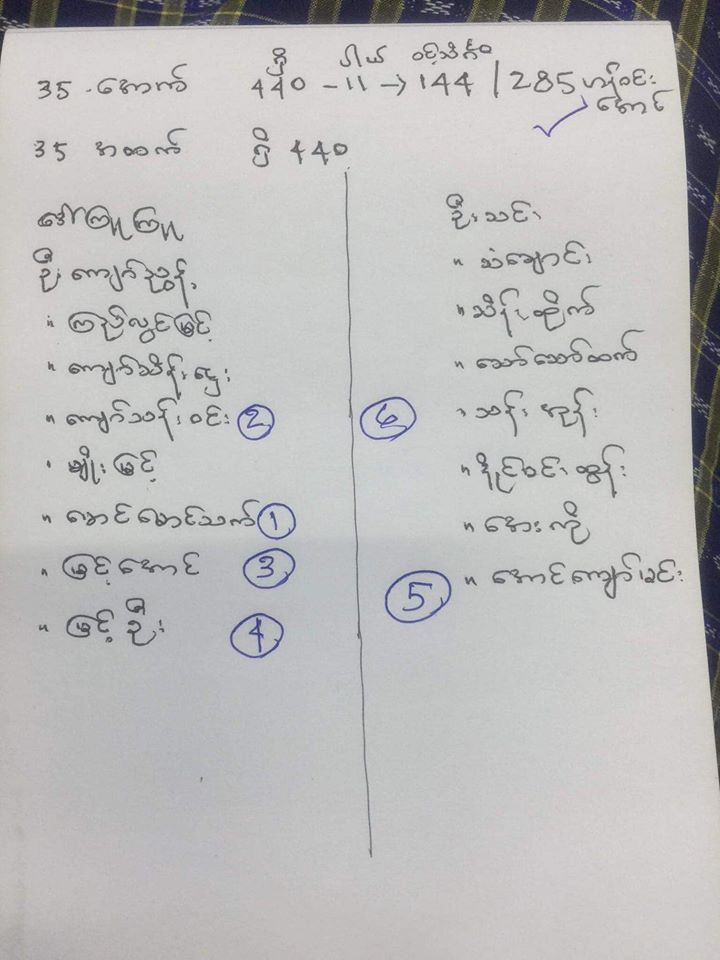 မဲ ပါယ် ခိုင်လုံမဲ
35 အောက် 440 – 11 → 144 / 285 ဟျိုဝင်း
အောင်
35 အထက် မဲ 440
ဒေါ်ကြူကြူ
ဦး ကျော်ညွန့်
" ကြည်လွင်မြင့်
" ကျော်သိန်းဌေး
" ကျော်သန်းဝင်း ②
" မျိုးမြင့်
" မောင်မောင်သက် ①
" မြင့်အောင် ③
" မြင့်ဦး ④
ဦးသင်း
" သံချောင်း
" သိန်းထိုက်
" သော်သော်ထက်
" သန်းညွန့် ⑥
" နိုင်ဝင်းထွန်း
" အေးကို
" အောင်ကျော်မင်း ⑤